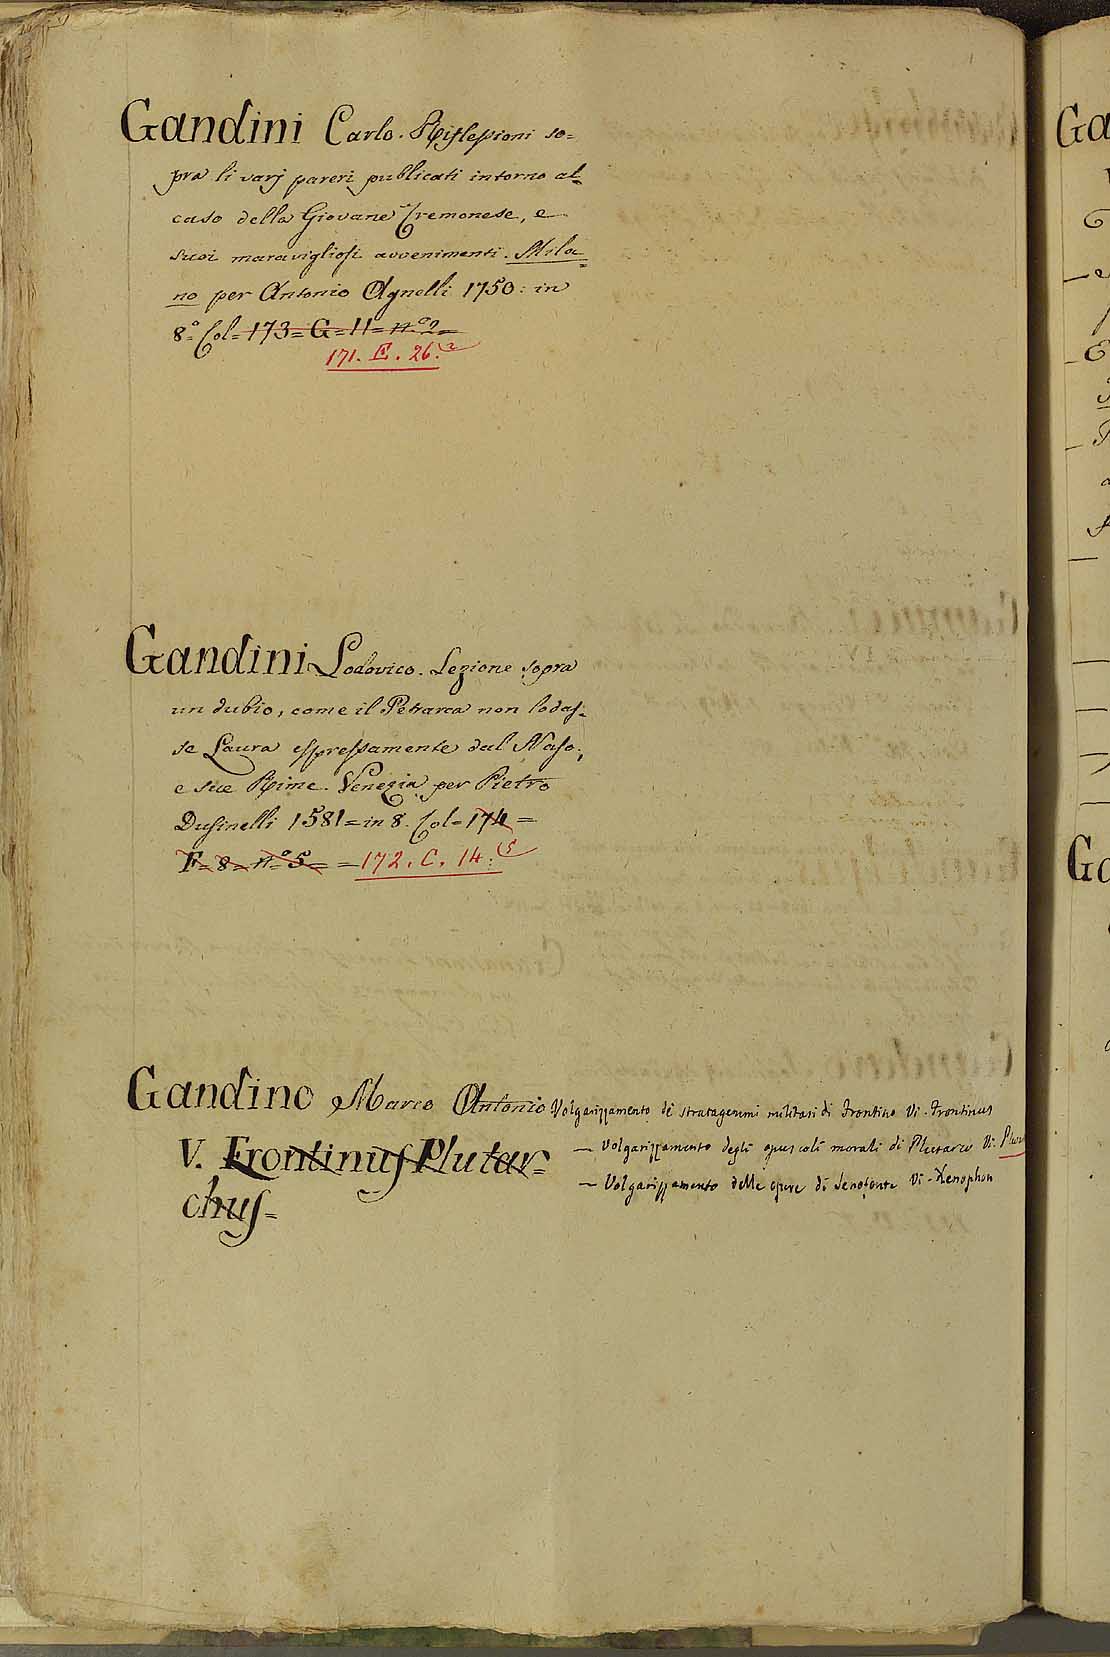 Gandini Carlo. Riflessioni so=
pra li varj pareri publicati intorno al
caso della Giovane Cremonese, e
suoi maravigliosi avvenimenti. Mila=
no per Antonio Agnelli 1750: in
8º Col= 173= G= 11= nº 2=
171. E. 26.2
Gandini Lodovico. Lezione sopra
un dubio, come il Petrarca non lodas=
se Laura espressamente dal Naso;
e sue Rime. Venezia per Pietro
Dusinelli 1581= in 8. Col= 174=
F= 8= nº 5= = 172. C. 14.5
Gandino Marco Antonio Volgarizzamento de stratagemmi militari di Frontino Vi. Frontinus
V. Frontinus Plutar=
chus=
— Volgarizzamento degli opuscoli morali di Plutarco Vi.
— Volgarizzamento delle opere di Senofonte Vi. Xenophon
Ga
Ga